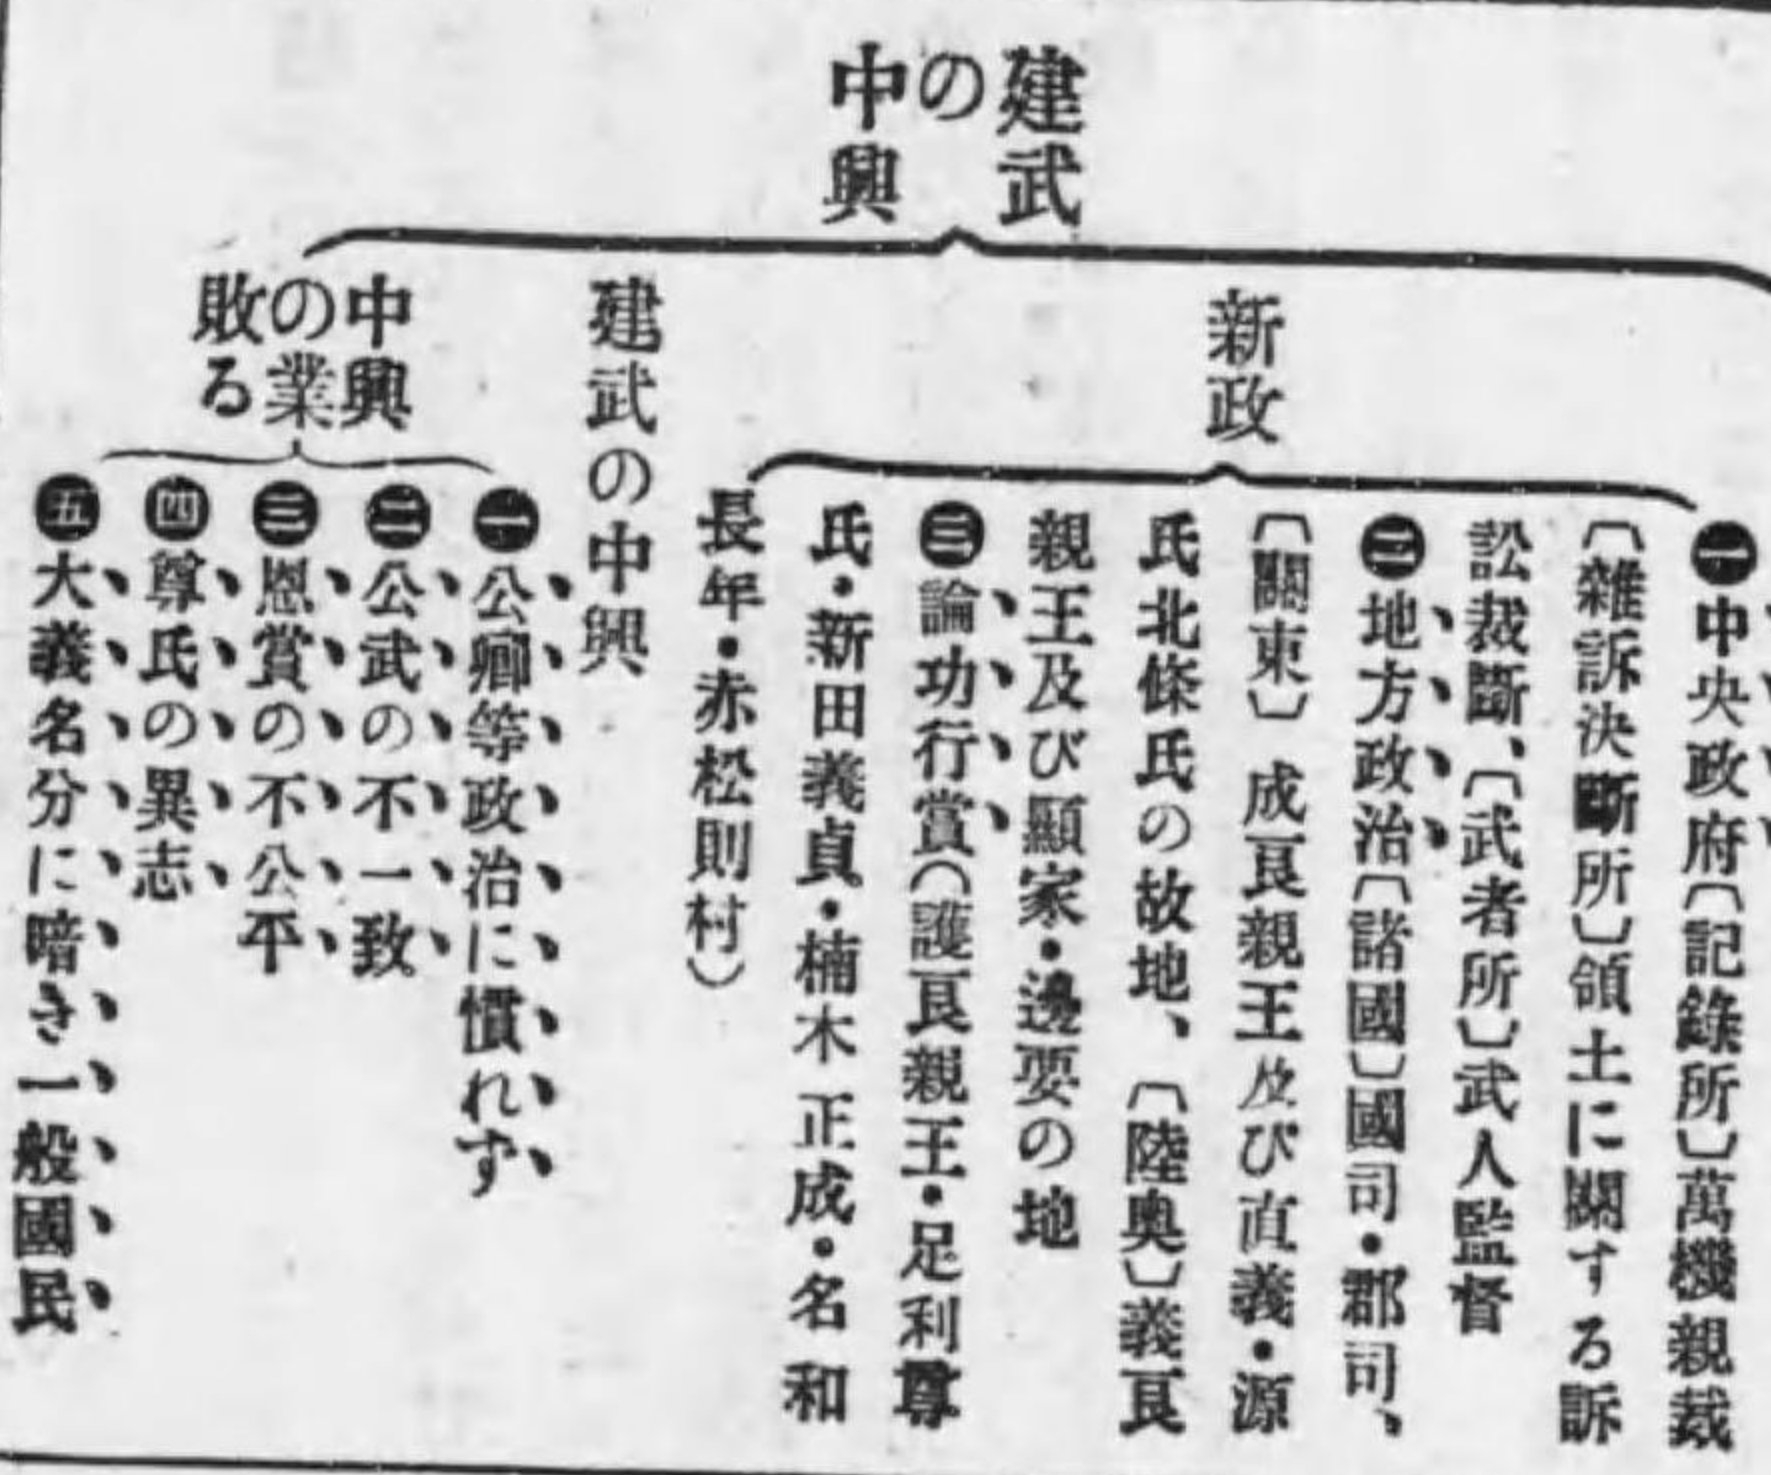 建武
の
中興
新政
㊀中央政府〔記錄所〕萬機親裁
〔雜訴決斷所〕領土に關する訴
訟裁斷、〔武者所〕武人監督
㊁地方政治〔諸國〕國司・郡司、
〔關東〕成良親王及び直義・源
氏北條氏の故地、〔陸奥〕義良
親王及び顯家・邊要の地
㊂論功行賞(護良親王・足利尊
氏・新田義貞・楠木正成・名和
長年・赤松則村)
建武の中興
中興
の業
敗る
㊀公卿等政治に慣れず
㊁公武の不一致
㊂恩賞の不公平
㊃尊氏の異志
㊄大義名分に暗き一般國民